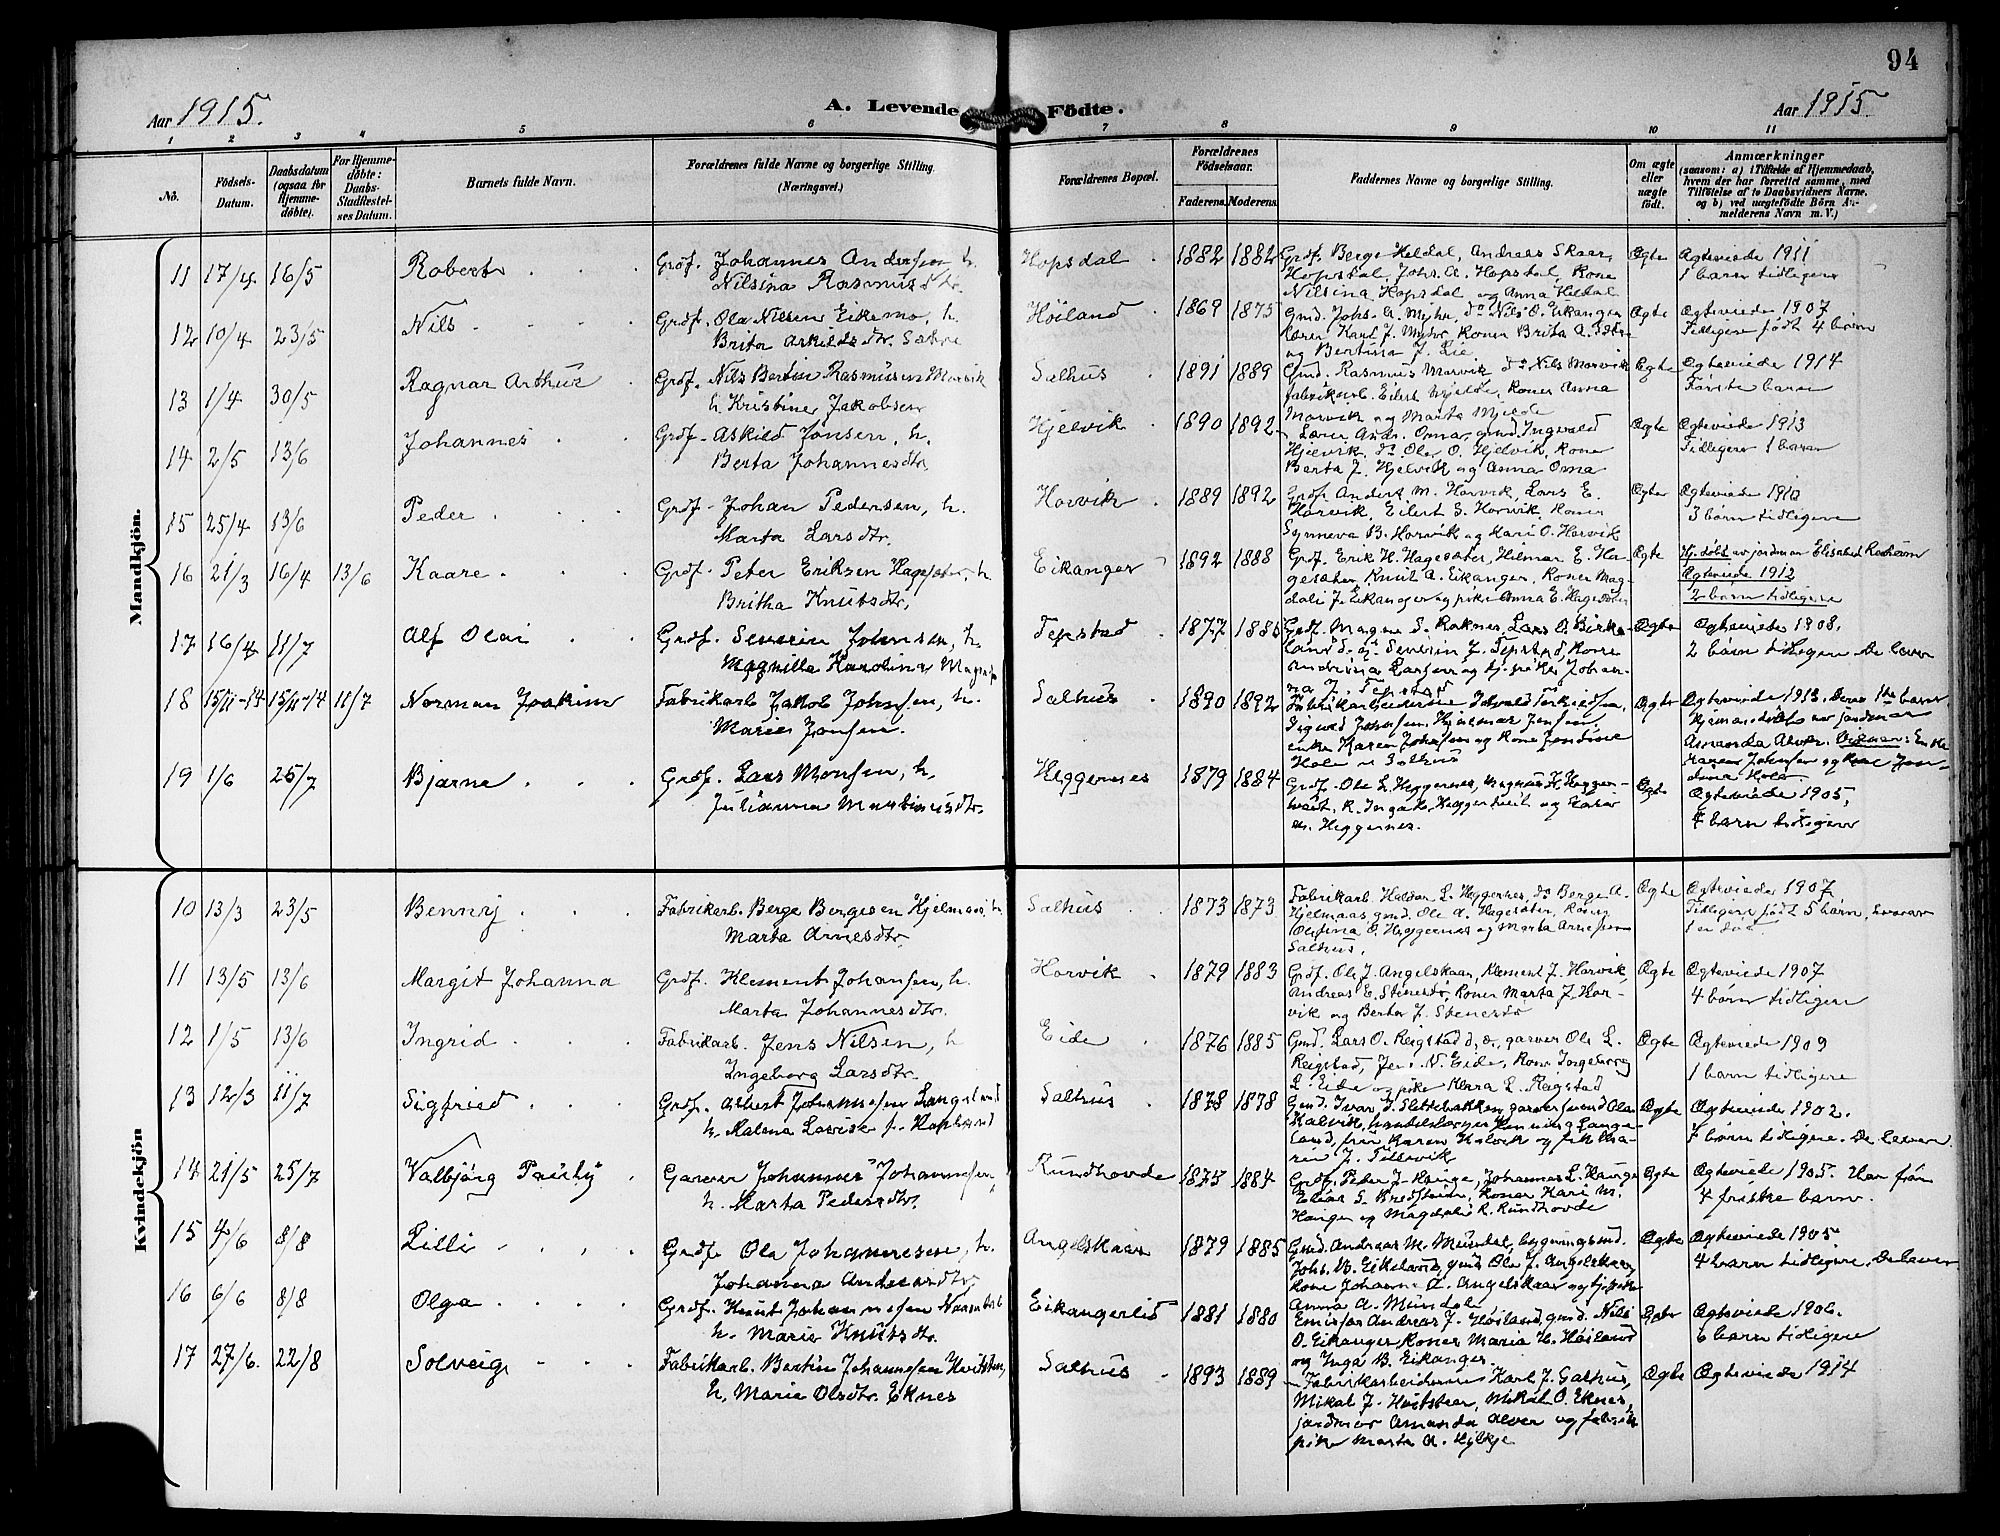 94
Aar 1915.
A. Levende Födte.
Aar 1915
1 2 3 4 5 6 7 8 9 10 11
No.
Födsels-Datum.
Daabsdatum (ogsaa for Hjemmedöbte).
For Hjemmedöbte: Daabs-Stadfæstelses Datum.
Barnets fulde Navn.
Forældrenes fulde Navne og borgerlige Stilling. (Næringsvei.)
Forældrenes Bopæl.
Forældrenes Födselsaar.
Faderens. Moderens.
Faddernes Navne og borgerlige Stilling.
Om ægte eller uægte födt.
Anmærkninger
(saasom: a) i Tilfælde af Hjemmedaab,
hvem der har forrettet samme, med
Tilföielse af to Daabsvidners Navne,
og b) ved uægtefödte Börn Anmelderens Navn m. V.)
Mandkjön.
11 17/4 16/5 Robert Grdf. Johannes Andersen h. Nilsina Rasmusdtr. Hopsdal 1882 1882 Grdf. Berge Heldal, Andreas Skaar
Hopsdal, Johs. A. Hopsdal, Kone
Nilsina Hopsdal og Anna Heldal
Ægte Ægteviede 1911
1 barn tidligere
12 10/4 23/5 Nils Grdf. Ola Nilsen Eikemo, h. Brita Askildsdtr. Sætre Höiland 1869 1875 Gmd. Johs. A. Myhr, do Nils O. Eikanger
lærer Karl J. Myhr Koner Brita A.
og Bertina J. Lie
Ægte Ægteviede 1907
Tidligere født 4 børn
13 1/4 30/5 Ragnar Arthur Grdf. Nils Bertin Rasmusen Morvik h. Kristine Jakobsen Salhus 1891 1889 Gmd. Rasmus Morvik do Nils Morvik
fabrikarb. Eilert Mjelde, Koner Anna
Morvik og Marta Mjelde
Ægte Ægteviede 1914
Første barn
14 2/5 13/6 Johannes Grdf. Askild Jonsen, h. Berta Johannesdtr. Hjelvik 1890 1892 Lærer Andr. Oma, gmd. Ingvald
Hjelvik, do Oler O. Hjelvik, Kone
Berta J. Hjelvik og Anna Oma
Ægte Ægteviede 1913
Tidligere 1 barn
15 25/4 13/6 Peder Grdf. Johan Pedersen, h. Marta Larsdtr. Horvik 1889 1892 Grdf. Anders M. Horvik, Lars E.
Horvik, Eilert S. Horvik Koner
Synneva B. Horvik og Kari O. Horvik
Ægte Ægteviede 1910
3 børn tidligere
16 21/3 16/4 13/6 Kaare Grdf. Peter Eriksen Hagesæter, h. Britha Knutsdtr. Eikanger 1892 1888 Grdf. Erik H. Hagesæter, Hilmar E. Ha-
gesæter, Knut A. Eikanger, Koner Mag-
dali J. Eikanger og pike Anna E. Hagesæter
Ægte Hj. døbt av jordmor Elisabet
Ægteviede 1912
2 barn tidligere
17 16/4 11/7 Alf Olai Grdf. Severin Johnsen, h. Magnilla Karolina Tepstad 1877 Grdf. Magne S. Raknes, Lars O. Birke-
land og Severin J. Tepstad, Kone
Andrina Larsen og tj. pike Johan-
na J. Tepstad
Ægte Ægteviede 1908.
2 børn tidligere. De lever
18 15/11-14 15/11-14 11/7 Norman Joakim Fabrikarb. Jakob Johnsen, h. Marie Jonsen. Salhus 1890 1892 Fabrikarbeiderne
Sigurd Johnsen, Hjalmar Jensen,
enke Karen Johnsen og Kone Jondine
Hole i Salhus
Ægte Ægteviede 1913. Deres 1ste barn.
Hjemmedøbt av jordmor
Amanda Alver. Vidner: Enke
Karen Johnsen og Kone Jon-
dina Hole
19 1/6 25/7 Bjarne Grdf. Lars Monsen, h. Julianna Martinusdtr. Heggernes 1879 1884 Grdf. Ole L. Heggernes, Magnus H. Hegger-
nes
M. Heggernes.
Ægte Ægteviede 1905,
4 barn tidligere
Kvindekjön
10 13/3 23/5 Benny Fabrikarb. Berge Bergesen Hjelmaas, h. Marta Arnesdtr. Salhus 1873 1873 Fabrikarb. Haldor L. Heggernes, do Berge A.
Hjelmaas, gmd. Ole A. Hagesæter, Koner
Olufina O. Heggernes og Marta Arnesen
Salhus.
Ægte Ægteviede 1907
Tidligere født 5 børn, hvorav
1 er død
11 13/5 13/6 Margit Johanna Grdf. Klement Johansen, h. Marta Johannesdtr. Horvik 1879 1883 Grdf. Ole J. Angelskaar, Klement J. Horvik,
Andreas E. Stenestø, Koner Marta J. Hor-
vik og Berta J. Stenestø
Ægte Ægteviede 1907
4 børn tidligere
12 1/5 13/6 Ingrid Fabrikarb. Jens Nilsen, h. Ingeborg Larsdtr. Eide 1876 1885 Gmd. Lars O. Reigstad d. æ., garver Ole L.
Reigstad, Jens N. Eide, Kone Ingeborg
L. Eide og pike Klara L. Regstad
Ægte Ægteviede 1909
1 barn tidligere
13 12/3 11/7 Sigfried Grdf. Albert Johannesen Langeland h. Malena Lovise f. Hopland Salhus 1878 1878 Gmd. Ivar J. Slettebakken, garversvend Ola
Kalvik, handelsborger Henning Lange-
land, fru Karen Kalvik og frk. Ka-
ren J. Tellevik
Ægte Ægteviede 1902.
7 børn tidligere. De lever
14 21/5 25/7 Valbjörg Pauly Garver Johannes Johannesen, h. Marta Pedersdtr. Rundhovde 1875 1884 Grdf. Peter J. Hauge, Johannes L. Hauge
Elias S. Bredheim, Koner Kari M.
Haugen og Magdeli R. Rundhovde
Ægte Ægteviede 1905. Har før
4 friske barn.
15 4/6 8/8 Lilli Grdf. Ola Johannesen, h. Johanna Andersdtr. Angelskaar 1879 1885 Gmd. Andreas M. Mundal, bygningssnd.
Johs. B. Eikeland, gmd. Ole J. Angelskaar
Kone Johanne L. Angelskaar og tj. pike
Anna A. Mundal
Ægte Ægteviede 1905
4 barn tidligere. De lever
16 6/6 8/8 Olga Grdf. Knut Johannesen h. Marie Knutsdtr. Eikangerlid 1881 1880 Emissær Andreas J. Høiland, gmd. Nils
O. Eikanger Koner Maria H. Høiland
og Inga B. Eikanger.
Ægte Ægteviede 1906.
6 barn tidligere
17 27/6. 22/8 Solveig Fabrikarb. Bertin Johannesen Kvitsten, h. Marie Olsdtr. Eknes Salhus 1893 1889 Fabrikarbeiderne Karl J. Galhus,
Mikal J. Hvitsteen, Mikal O. Eknes,
jordmor Amanda Alver og fabrik
pike Marta A. Hylkje
Ægte Ægteviede 1914